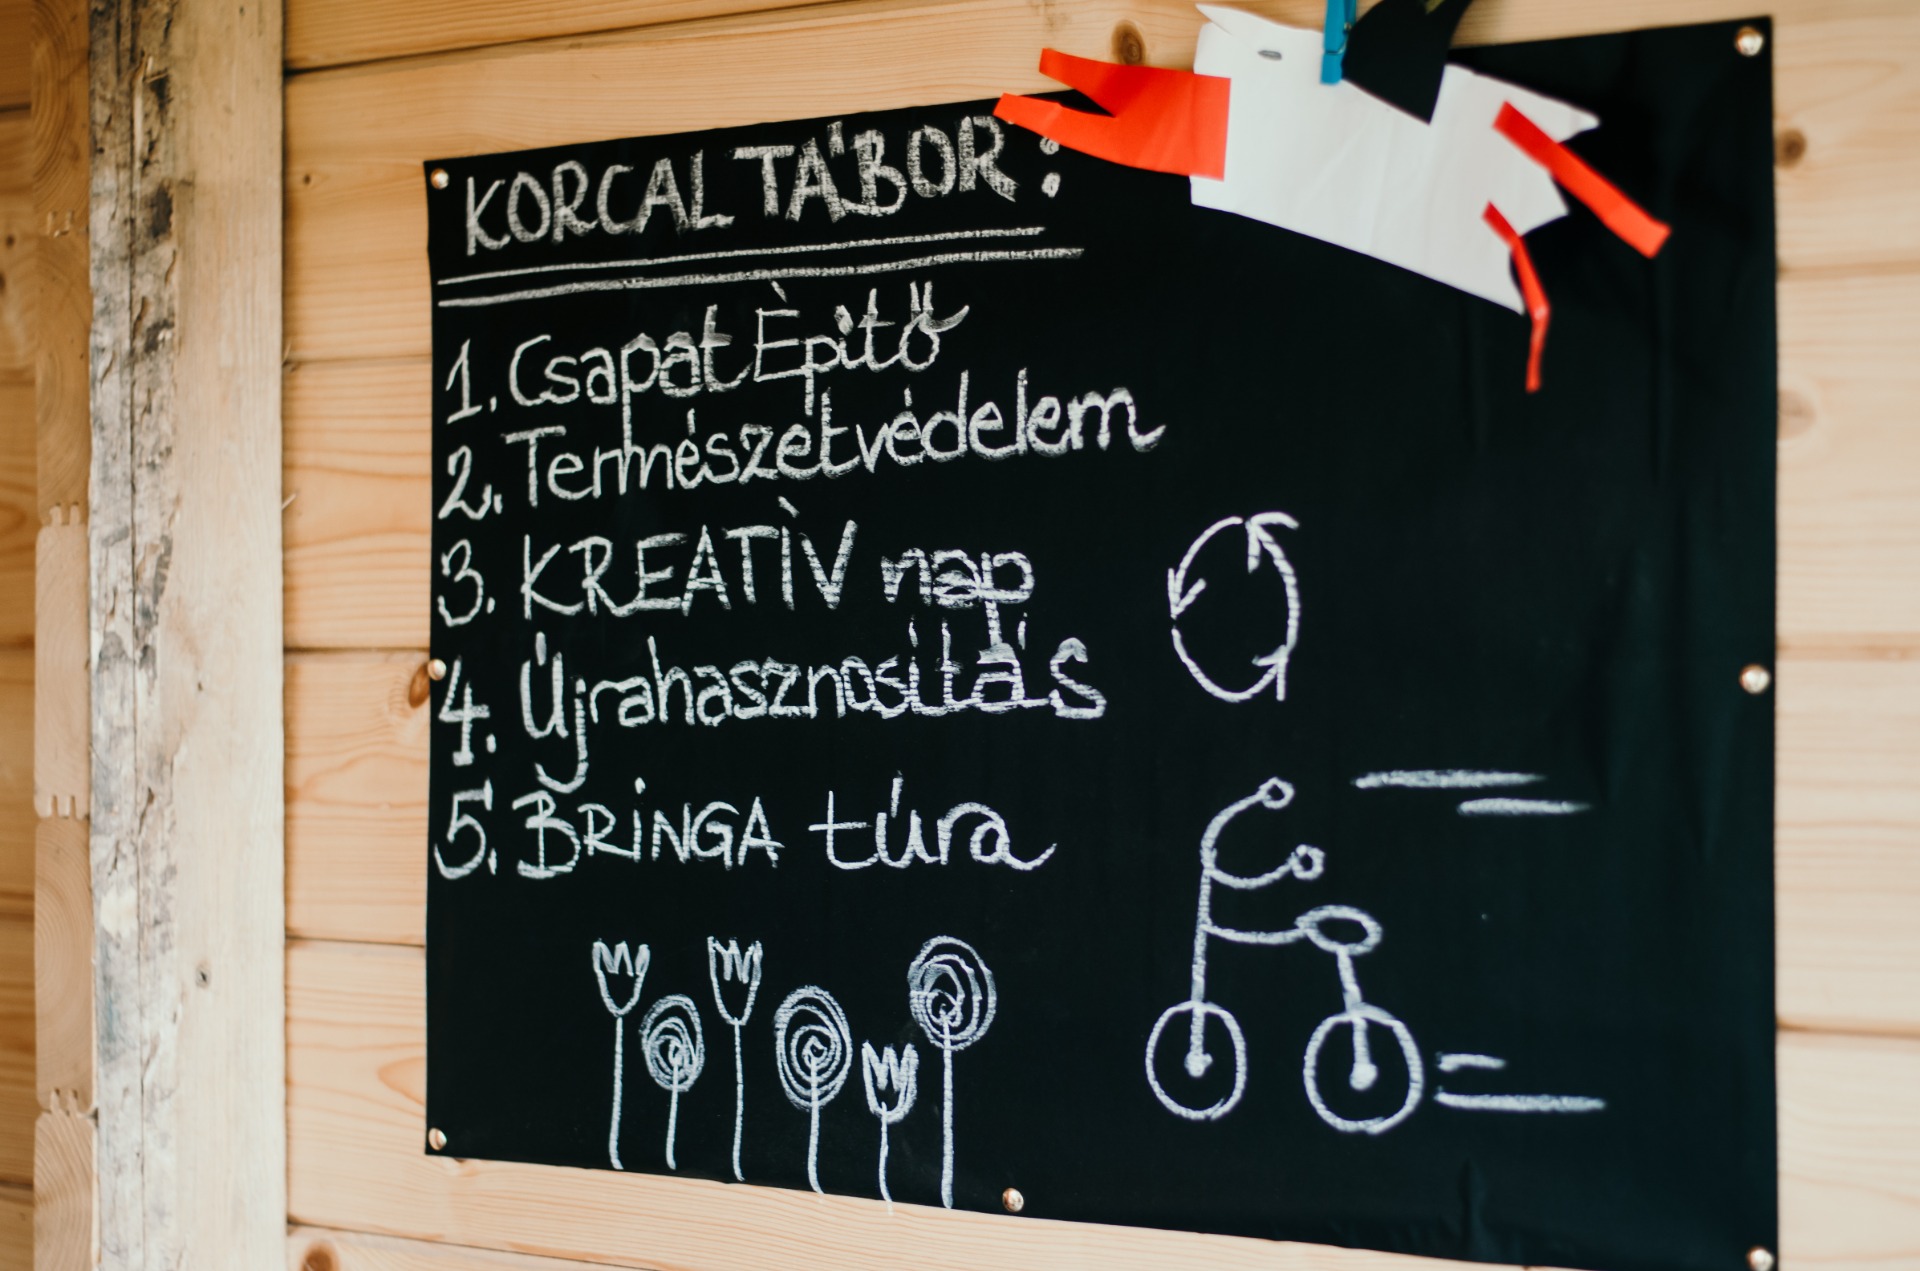 KORCAL TÁBOR:
1. Csapat Èpitő
2. Természetvédelem
3. KREATÌV nap
4. Újrahasznosítás
5. BRiNGA túra